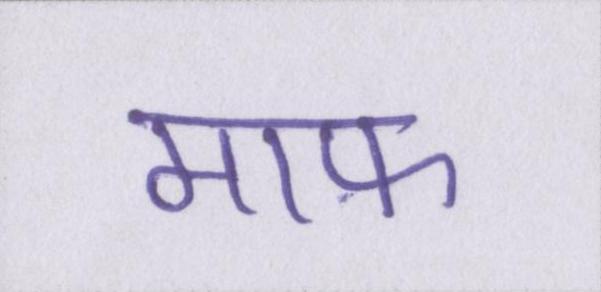 माफ़